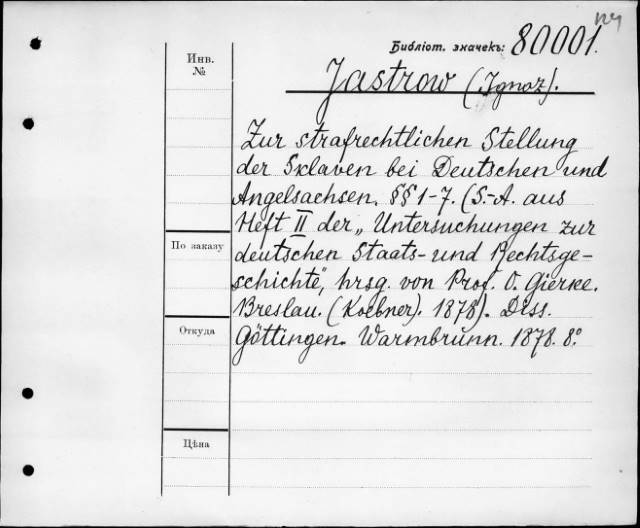 Библіот. значекъ: 80001.
Инв.
№
Jastrow (Ignaz).
Zur strafrechtlichen Stellung
der Sklaven bei Deutschen und
Angelsachsen. §§ 1-7. (S.-A. aus
Heft II der „Untersuchungen zur
deutschen Staats- und Rechtsge-
schichte", hrsg. von Prof. O. Gierke.
Breslau. (Koebner). 1878). Diss.
Göttingen. Warmbrunn. 1878. 8º.
По заказу
Откуда
Цѣна